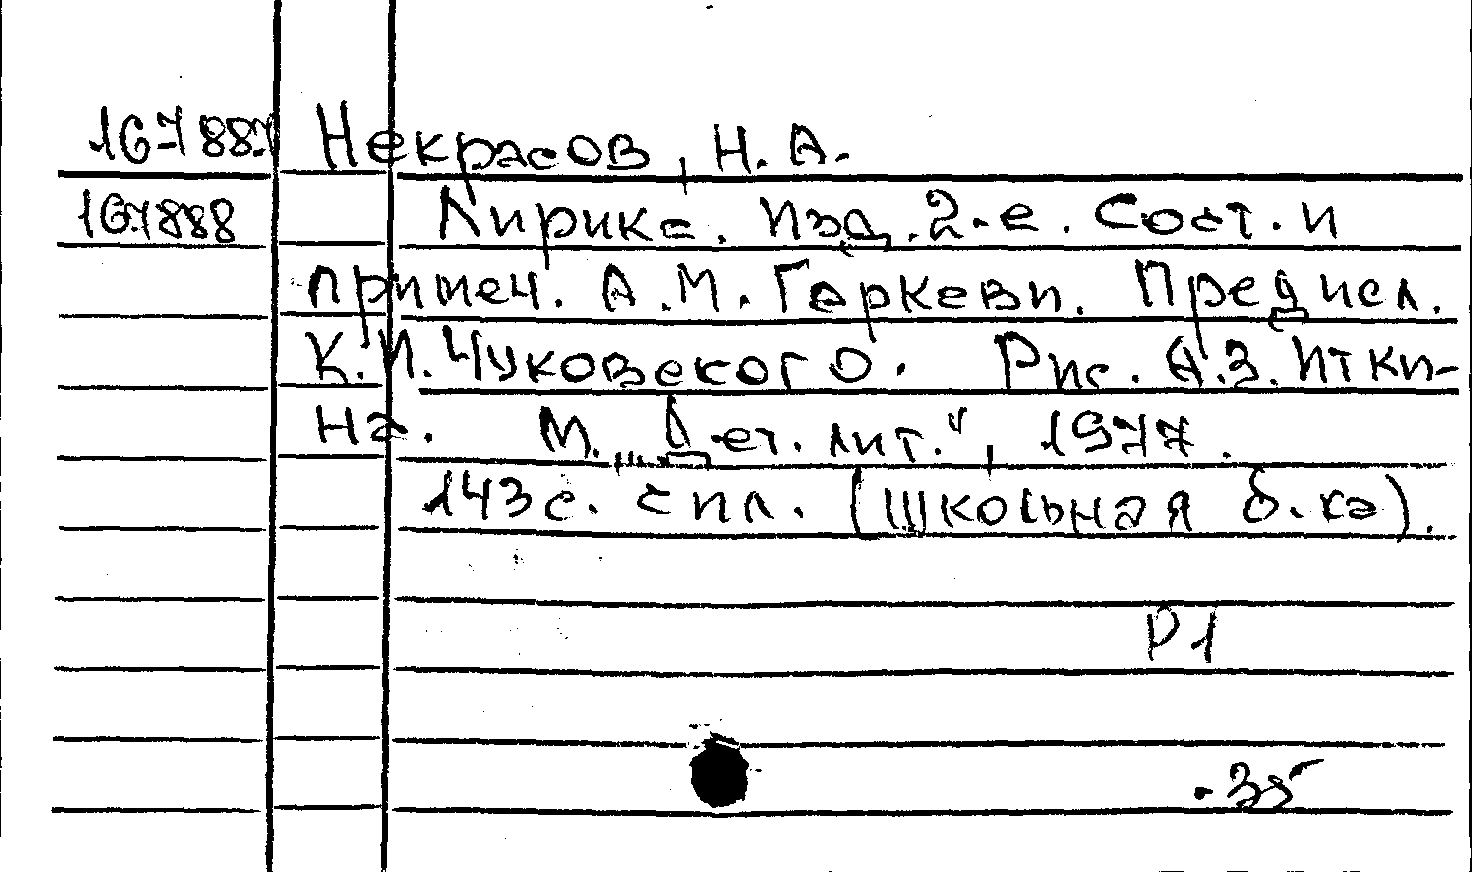 167887 Некрасов, Н. А.
167888 Лирика. Изд. 2-е. Сост. и
примеч. А. М. Гаркави. Предисл.
К. И. Чуковского. Рис. А. З. Итки-
на. М. „Дет. лит.", 1977.
143 с. с ил. (Школьная б-ка).
Р1
-35